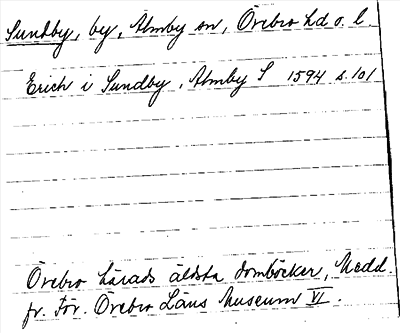 Sundby, by, Almby sn, Örebro hd o. l.
Erich i Sundby, Almby S 1594 s. 101
Örebro härads äldsta domböcker, Medd.
fr. För. Örebro Läns Museum VI.